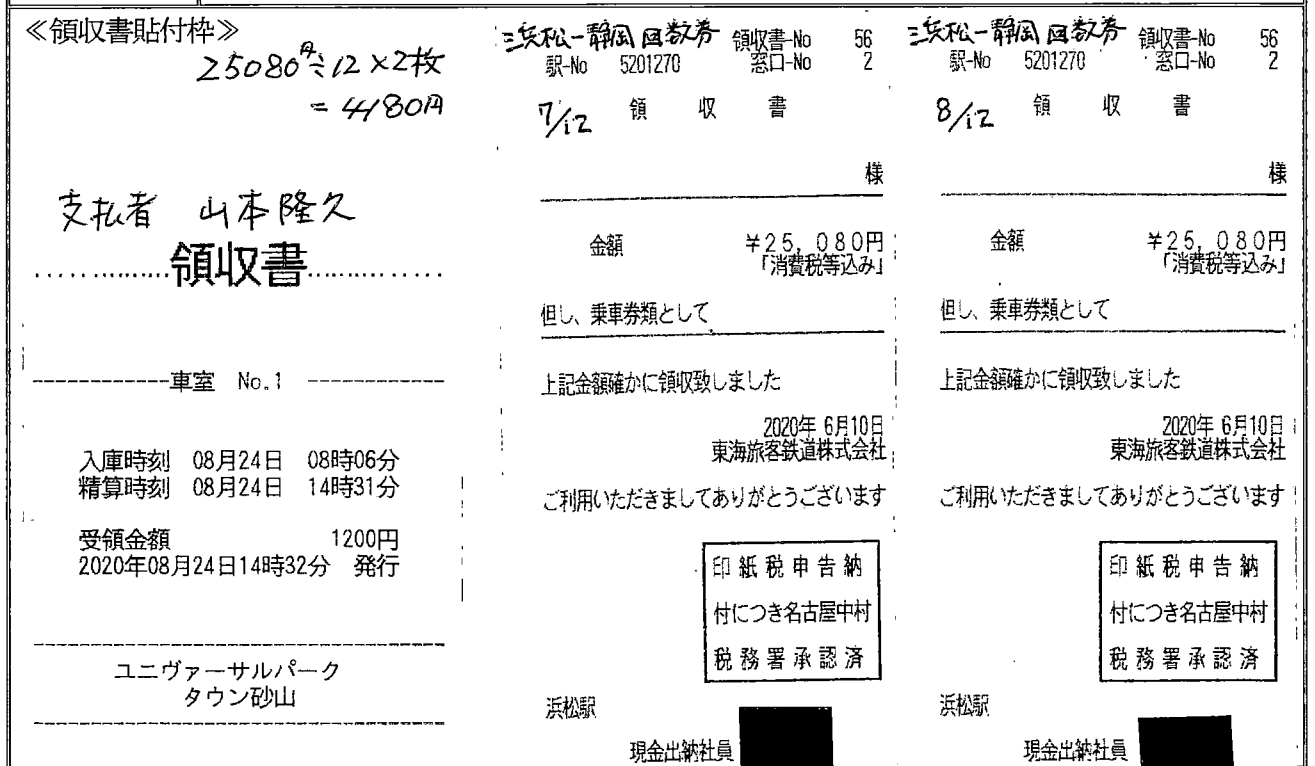 ≪領収書貼付枠≫
25080円÷12×2枚
=4180円
支払者 山本隆久
領収書
車室 No.1
入庫時刻 08月24日 08時06分
精算時刻 08月24日 14時31分
受領金額 1200円
2020年08月24日14時32分 発行
ユニヴァーサルパーク
タウン砂山
浜松-静岡 回数券 領収書-No 56
駅-No 5201270 窓口-No 2
7/12 領収書
様
金額 ¥25,080円
「消費税等込み」
但し、乗車券類として
上記金額確かに領収致しました
2020年 6月10日
東海旅客鉄道株式会社
ご利用いただきましてありがとうございます
印紙税申告納
付につき名古屋中村
税務署承認済
浜松駅
現金出納社員
浜松-静岡 回数券 領収書-No 56
駅-No 5201270 窓口-No 2
8/12 領収書
様
金額 ¥25,080円
「消費税等込み」
但し、乗車券類として
上記金額確かに領収致しました
2020年 6月10日
東海旅客鉄道株式会社
ご利用いただきましてありがとうございます
印紙税申告納
付につき名古屋中村
税務署承認済
浜松駅
現金出納社員